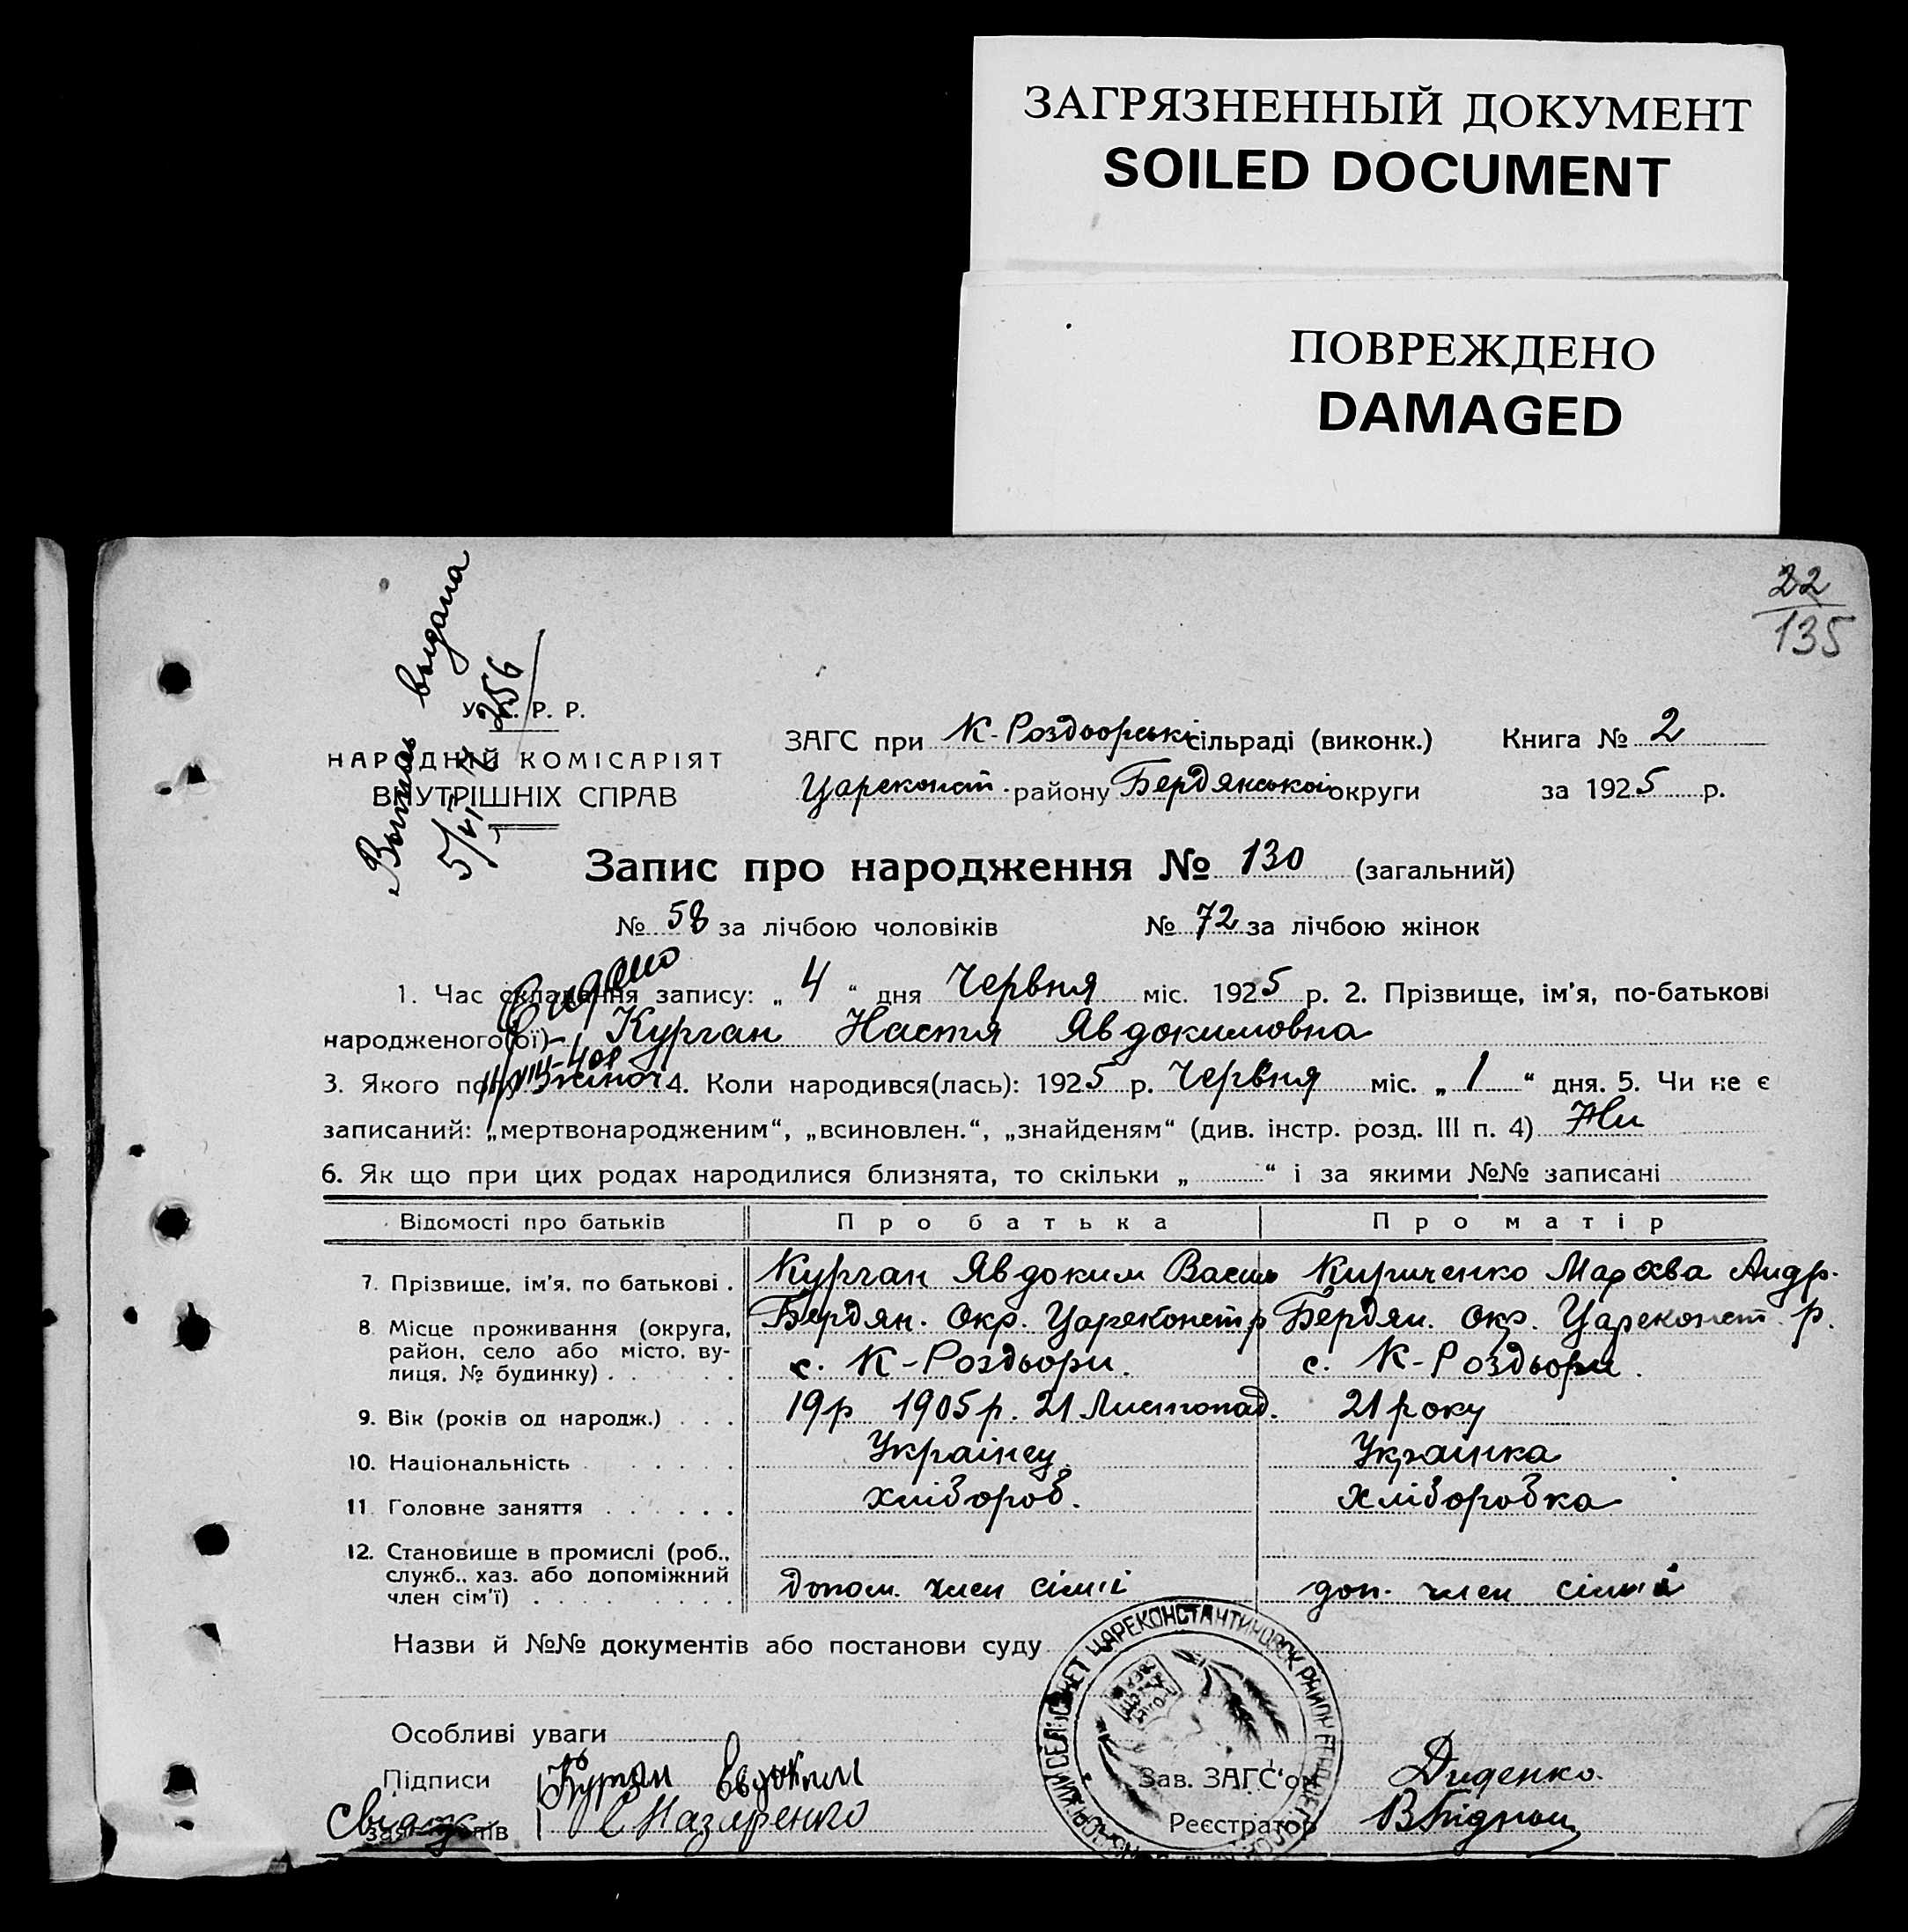 ЗАГРЯЗНЕННЫЙ ДОКУМЕНТ
SOILED DOCUMENT
ПОВРЕЖДЕНО
DAMAGED
22
135
выдана
256
У. Р. Р.
НАРОДНІЙ КОМІСАРІЯТ
ВНУТРІШНІХ СПРАВ
ЗАГС при К-Роздьорські сільраді (виконк.) Книга № 2
Цареконст. району Бердянської округи за 1925 р.
Запис про народження № 130 (загальний)
№ 58 за лічбою чоловіків № 72 за лічбою жінок
1. Час складання запису: „ 4 “ дня Червня міс. 1925 р. 2. Прізвище, ім'я, по-батькові
народженого(ої) Курган Настя Явдокимовна
3. Якого полу жіноч 4. Коли народився(лась): 1925 р. Червня міс. „ 1 “ дня. 5. Чи не є
записаний: „мертвонародженим“, „всиновлен.“, „знайденям“ (див. інстр. розд. III п. 4) Ни
6. Як що при цих родах народилися близнята, то скільки „ “ і за якими №№ записані
Відомості про батьків Про батька Про матір
7. Прізвище, ім'я, по батькові . Курган Явдоким Васил Кириченко Мархва Андр.
8. Місце проживання (округа, район, село або місто, вулиця, № будинку) Бердян. Окр. Цареконст р Бердян. окр. Цареконст. р.
с. К-Роздьори. с. К-Роздьори.
9. Вік (років од народж.) 19р 1905р. 21 Листопад. 21 року
10. Національність Українец Українка
11. Головне заняття хлібороб. хліборобка
12. Становище в промислі (роб., служб., хаз. або допоміжний член сім'ї) допом. член сімії доп. член сімії
Назви й №№ документів або постанови суду
Особливі уваги
Підписи Курган Евдоким Зав. ЗАГС'ом Диденко.
Назаренко Реєстратор
ЦАРЕКОНСТАНТИНОВСК